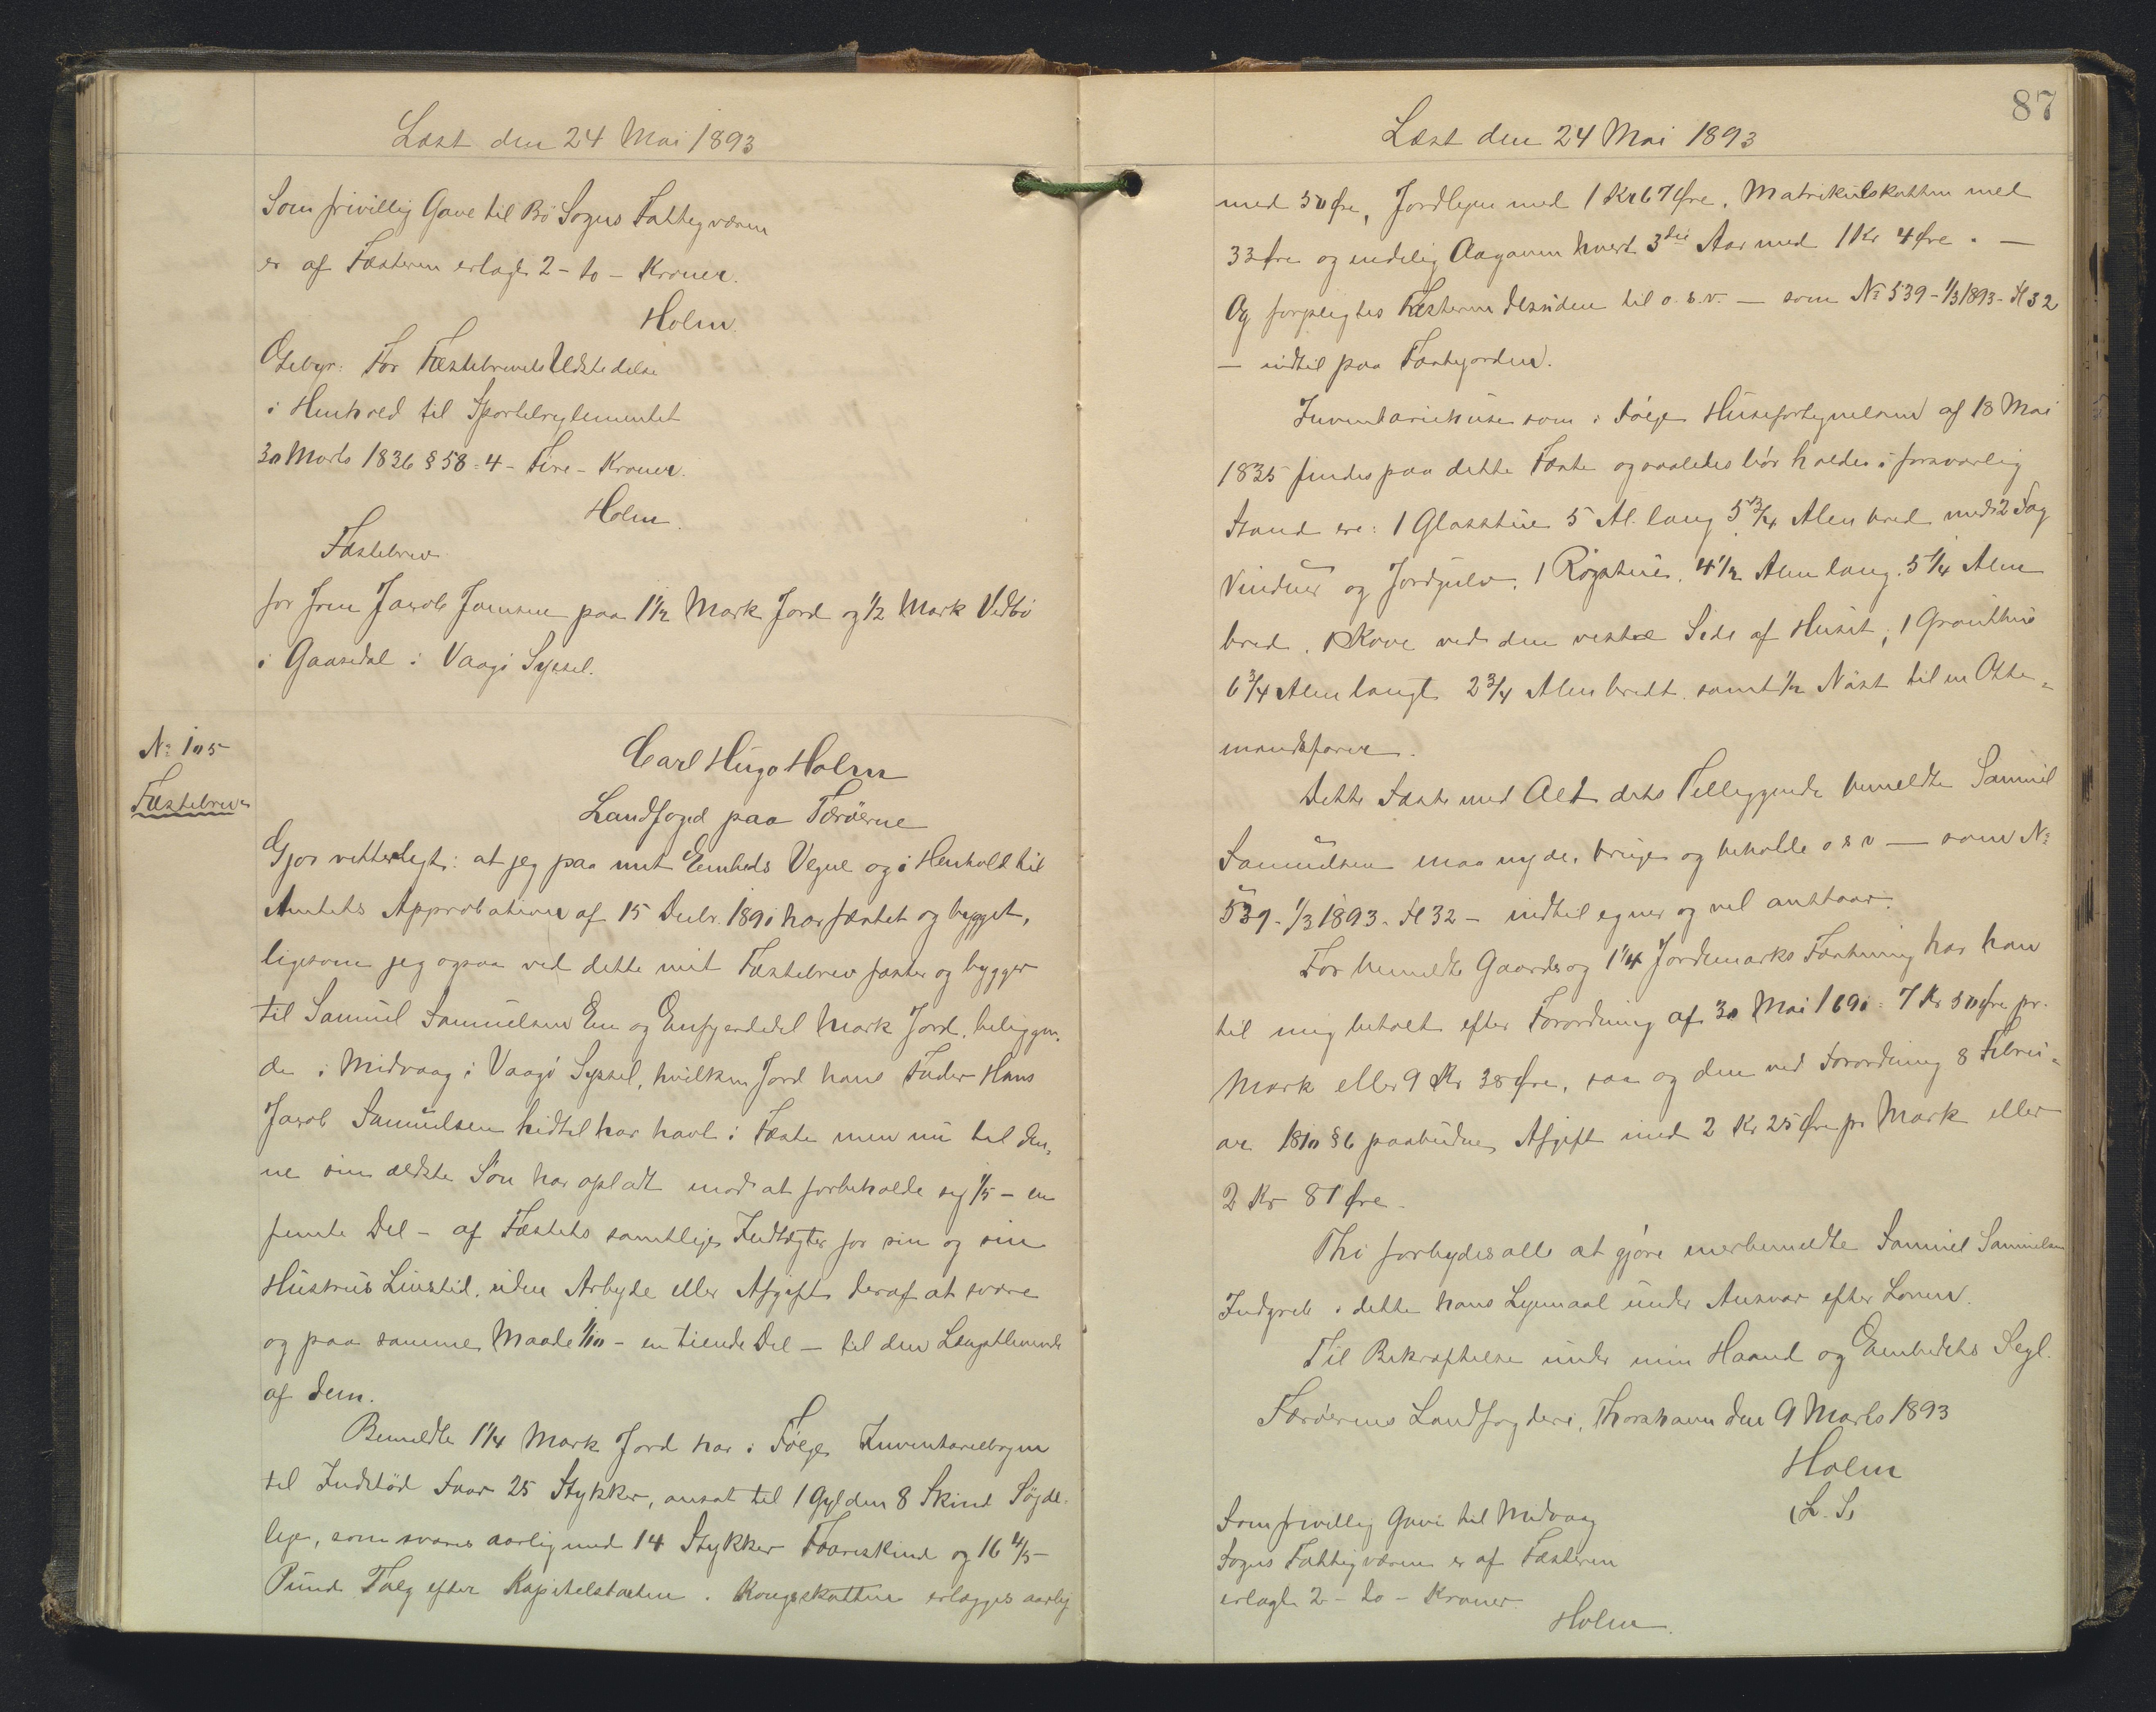 Læst den 24 Mai 1893
Som frivillig Gave til Bø Sogns Fattigvæsen
er af Fæsteren erlagt 2 - to - Kroner.
Holm.
Gebyr: For Fæstebrevets Udstedelse
i Henhold til Sportelreglementet
30 Marts 1836 § 58 = 4 - Fire - Kroner.
Holm.
Fæstebrev
for Joen Jacob Joensen paa 1½ Mark Jord og ½ Mark Vidbø
i Gaasedal i Vaagø Syssel.
No 105
Fæstebrev
Carl Hugo Holm
Landfoged paa Færøerne
Gjør vitterligt: at jeg paa mit Embeds Vegne og i Henhold til
Amtets Approbation af 15 Decbr. 1890 har fæstet og bygget,
ligesom jeg ogsaa ved dette mit Fæstebrev fæster og bygger
til Samuel Samuelsen En og Enfjerdedel Mark Jord, beliggen-
de i Midvaag i Vaagø Syssel, hvilken Jord hans Fader Hans
Jacob Samuelsen hidtil har havt i Fæste men nu til den-
ne sin ældste Søn har opladt mod at forbeholde sig 1/5 - en
femte Del - af Fæstets samtlige Indtægter for sin og sin
Hustrus Livstid, uden Arbejde eller Afgift deraf at svare
og paa samme Maade 1/10 - en tiende Del - til den Længstlevende
af dem.
Bemeldte 1¼ Mark Jord har i Følge Inventariebogen
til Indstød Faar 25 Stykker, ansat til 1 Gylden 8 Skind Søjde-
leje, som svares aarlig med 14 Stykker Faareskind og 16 4/5
Pund Talg efter Kapitelstaxten. Kongsskatten erlægges aarlig
87
Læst den 24 Mai 1893
med 50 Øre, Jordlejen med 1 Kr 67 Øre, Matrikulskatten med
33 Øre og endelig Aagaven hvert 3die Aar med 1 Kr 4 Øre. —
Og forpligtes Fæsteren desuden til o.s.v. — som No 539 - 1/3 1893 - Fl 32
— indtil paa Fæstejorden.
Inventariehuse som i Følge Husefortegnelsen af 18 Mai
1835 findes paa dette Fæste og saaledes bør holdes i forsvarlig
Stand ere: 1 Glasstue 5 Al. lang 5¾ Alen bred med 2 Fag
Vinduer og Jordgulv, 1 Røgstue, 4½ Alen lang, 5¼ Alen
bred. 1 Kove ved den vestre Side af Huset, 1 Grouthus
6¾ Alen langt 2¾ Alen bredt samt ½ Nøst til en Otte-
mandsfarer.
Dette Fæste med Alt dets Tilliggende bemeldte Samuel
Samuelsen maa nyde, bruge og beholde o s v — som No
539 - 1/3 1893 - Fl 32 - indtil egner og vel anstaar.
For bemeldte Gaards og 1¼ Jordemarks Fæstning har han
til mig betalt efter Forordning af 30 Mai 1690 = 7 Kr 50 Øre pr.
Mark eller 9 Kr 38 Øre, saa og den ved Forordning 8 Febru-
ar 1810 § 6 paabudne Afgift med 2 Kr 25 Øre pr Mark eller
2 Kr 81 Øre.
Thi forbydes alle at gjøre merbemeldte Samuel Samuelsen
Indgreb i dette hans Lejemaal under Ansvar efter Loven.
Til Bekræftelse under min Haand og Embedets Segl.
Færøernes Landfogderi, Thorshavn den 9 Marts 1893
Holm
(L. S.
Som frivillig Gave til Midvaag
Sogns Fattigvæsen er af Fæsteren
erlagt 2 - to - Kroner.
Holm.